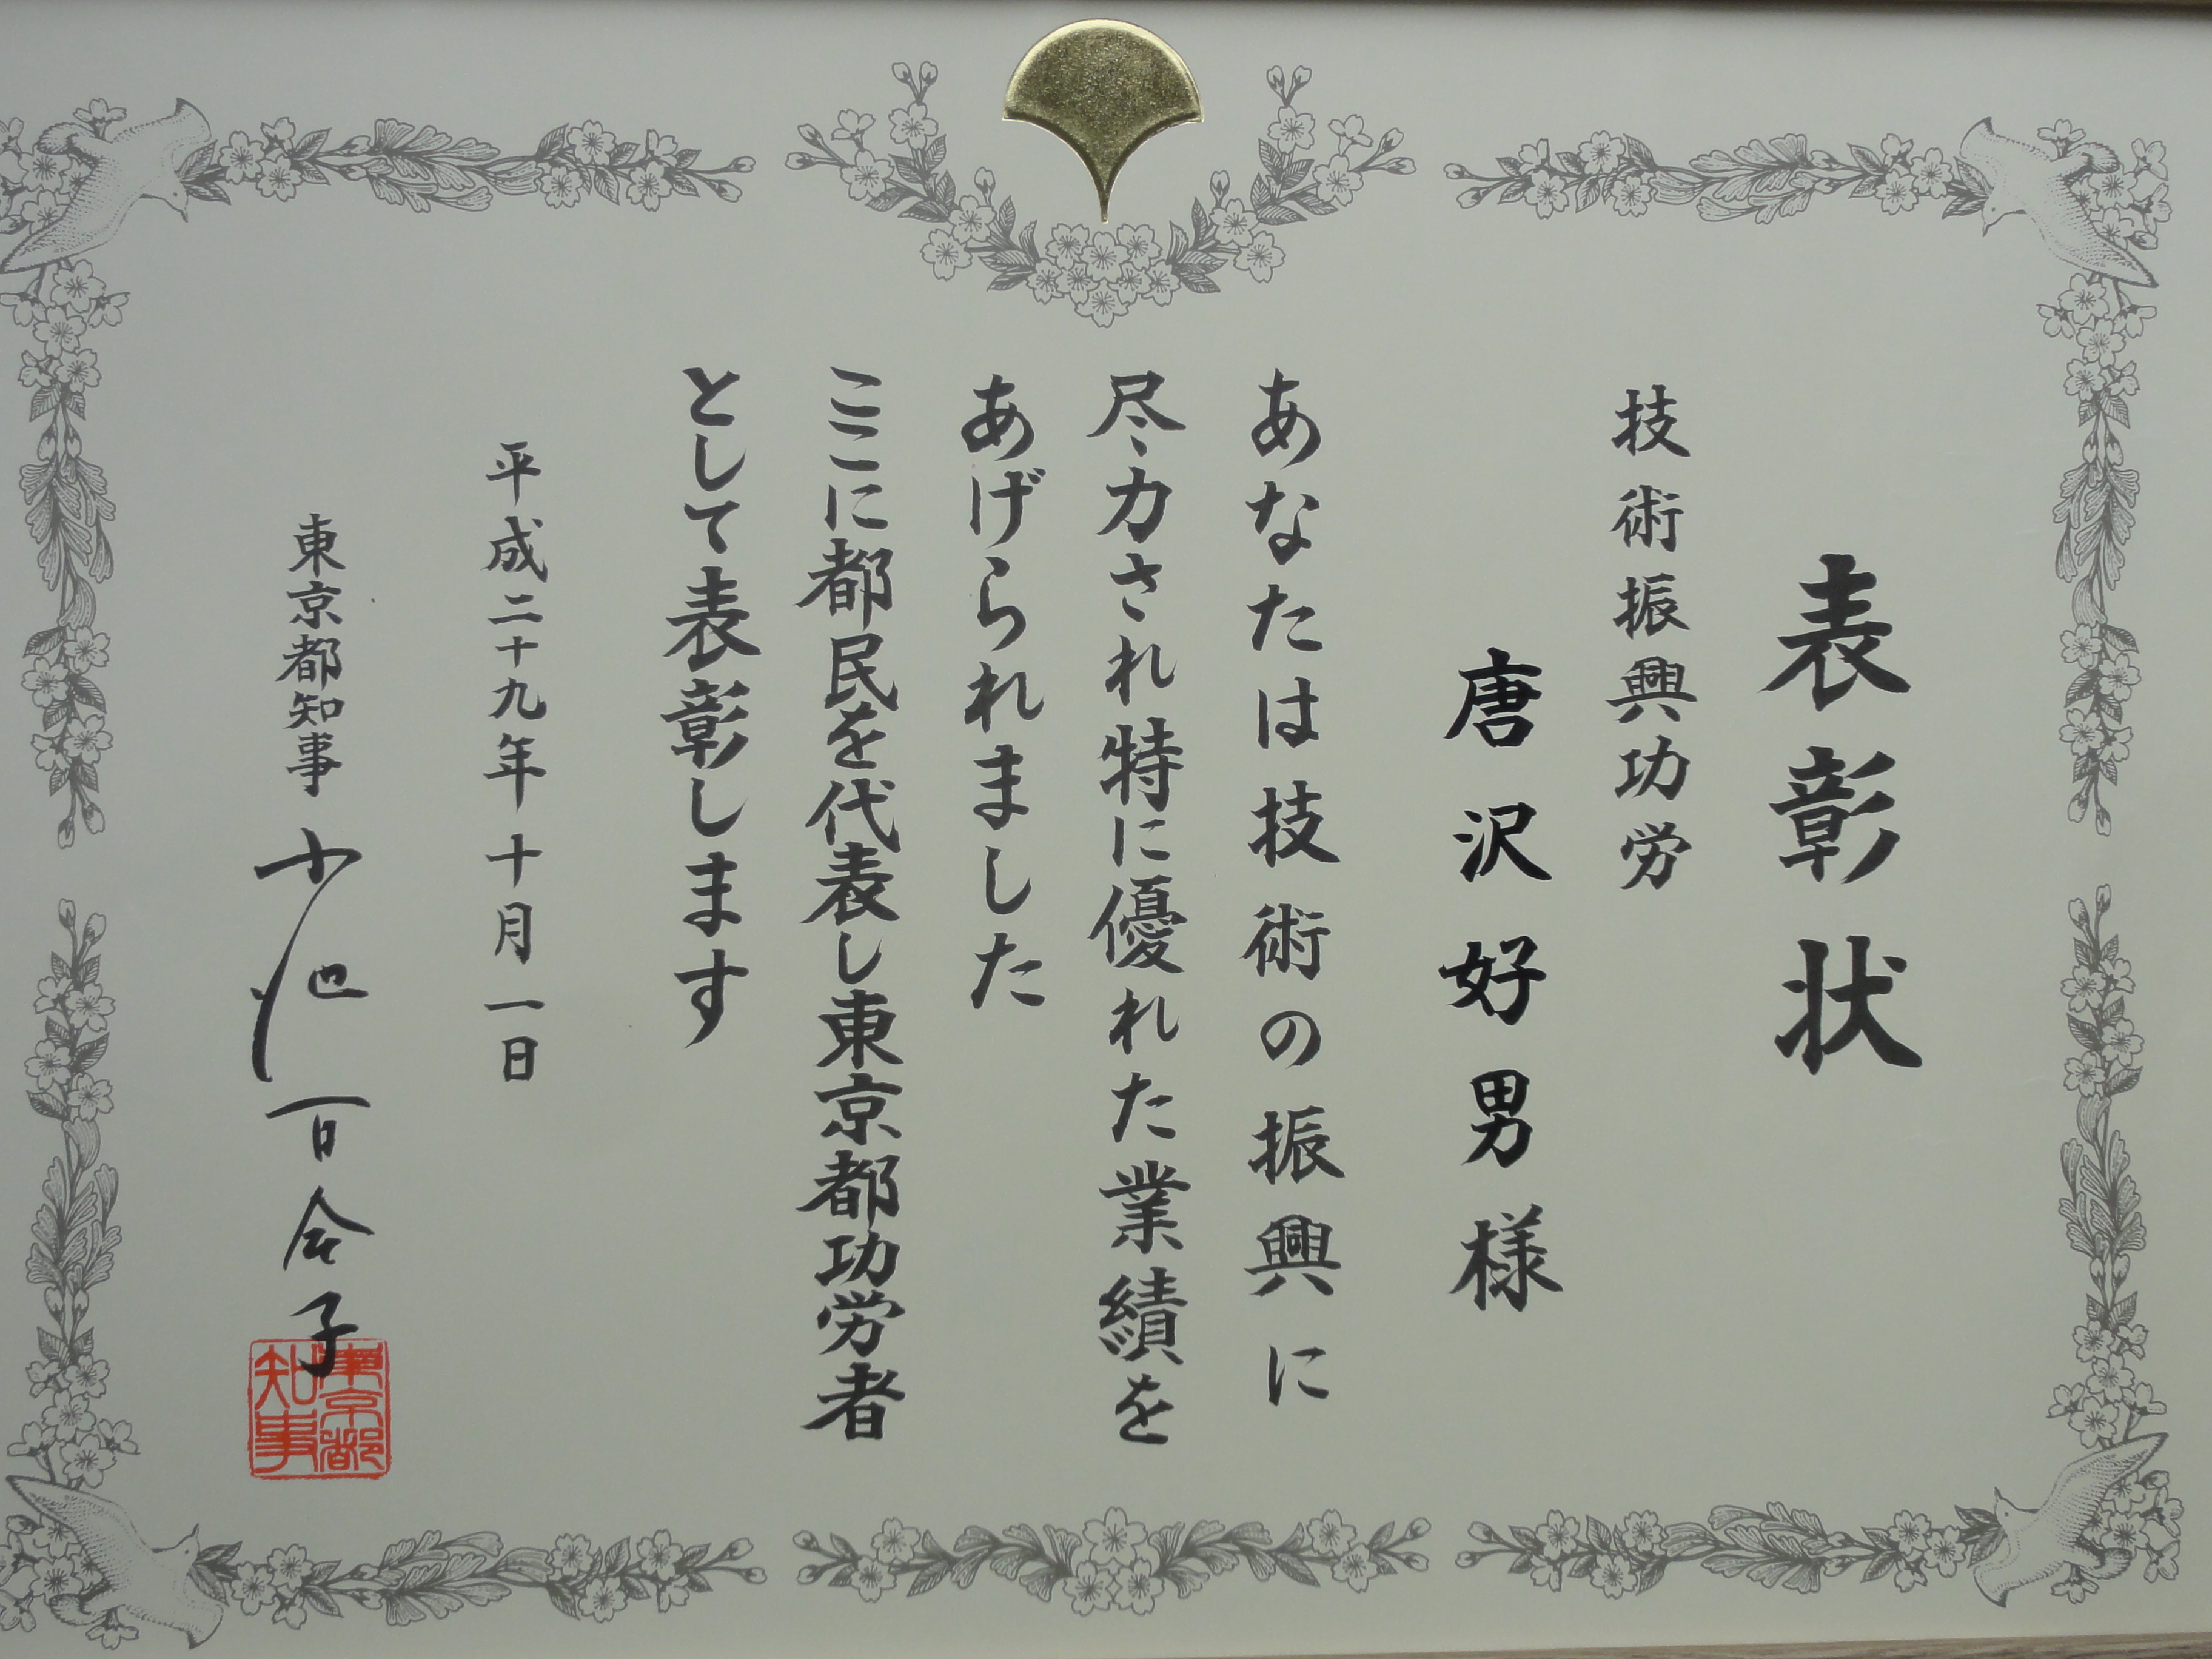 表彰状
技術振興功労
唐沢好男様
あなたは技術の振興に
尽力され特に優れた業績を
あげられました
ここに都民を代表し東京都功労者
として表彰します
平成二十九年十月一日
東京都知事 小池百合子
東京都
知事